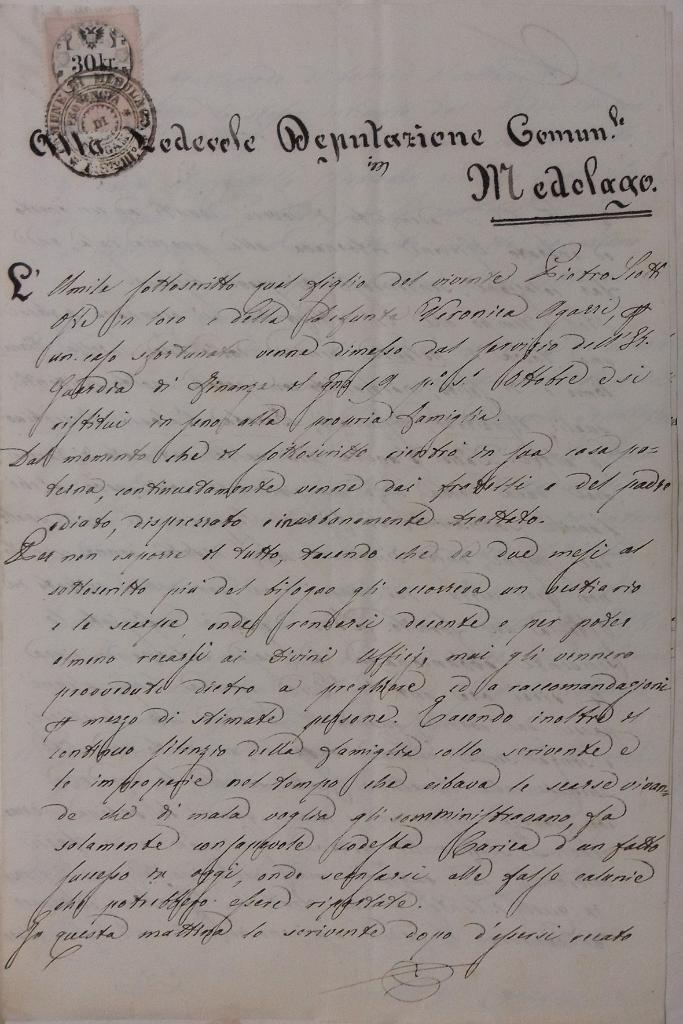 30 kr.
Alla Lodevole Deputazione Comun.le
in
Medolago.
L'Umile sottoscritto qual figlio del vivente Pietro Scotti
in loco e della Defunta Veronica Agazzi, p
un caso sfortunato venne dimesso dal servizio dell'
Guardia di Finanze el 19 p.o s.o Ottobre e si
ristituì in seno alla propria famiglia.
Dal momento che el sottoscritto rientrò in sua casa pa-
terna, continuatamente venne dai fratelli e del padre
odiato, disprezzato e inurbanamente trattato.
Per non esporre el tutto, tacendo che da due mesi al
sottoscritto più del bisogno gli occorreva un vestiario
e le scarpe, onde rendersi decente e per poter
almeno recarsi ai Divini Officj, mai gli vennero
provveduto dietro a preghiere ed a raccomandazioni
p mezzo di stimate persone. Tacendo inoltre el
continuo silenzio della famiglia collo scrivente e
le improperie nel tempo che cibava le scarse vivan-
de che di mala voglia gli somministravano, fa
solamente consapevole codesta Carica d'un fatto
successo in oggi, onde scansarsi alle false calunie
che potrebbero essere riportate.
In questa mattina lo scrivente dopo d'essersi recato